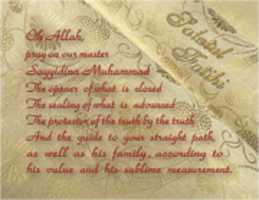 Oh Allah,
pray on our master
Sayyidina Muhammad
The opener of what is closed
The sealing of what is advanced
The protector of the truth by the truth
And the guide to your straight path
as well as his family, according to
his value and his sublime measurement.
Salatul
Fatihi